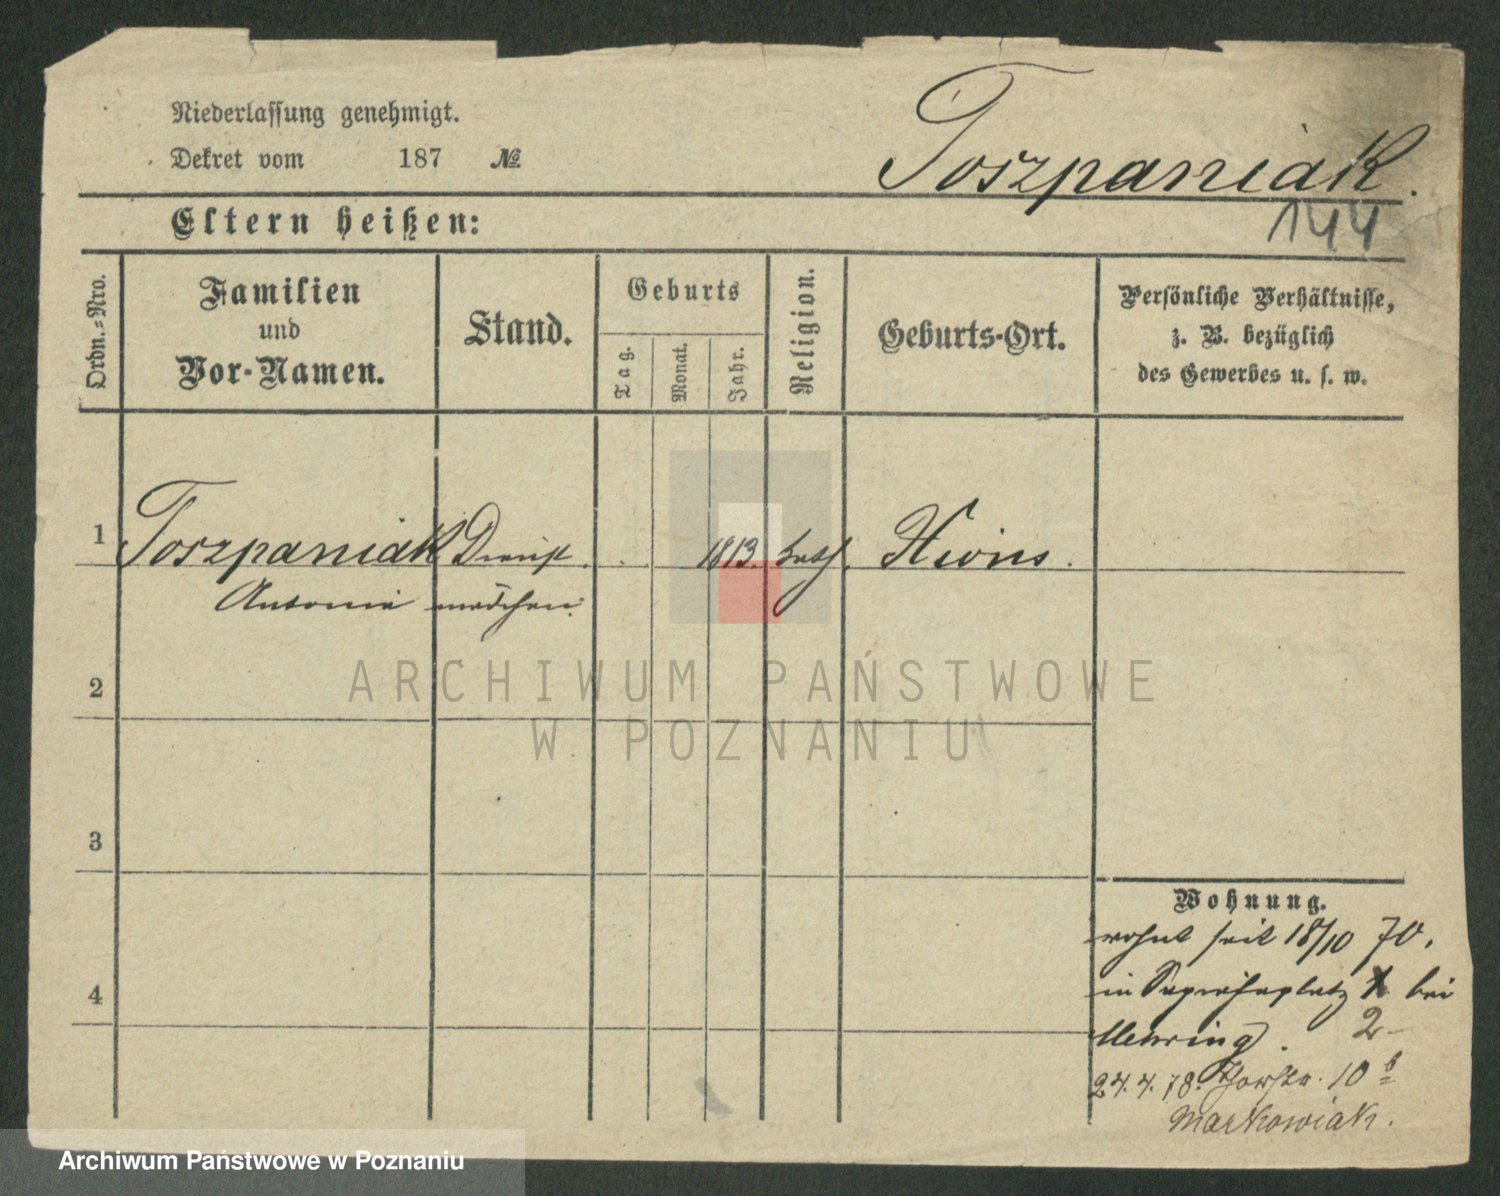 Niederlassung genehmigt.
Dekret vom 187 №
Toszpaniak.
144
Eltern heißen:
Ordn.=Nro.
Familien
und
Vor-Namen.
Stand.
Geburts
Tag.
Monat.
Jahr.
Religion.
Geburts-Ort.
Persönliche Verhältnisse,
z. B. bezüglich
des Gewerbes u. s. w.
1 Toszpaniak Dienst 1813. kath. Xions.
Antonie mädchen
2
3
4
Wohnung.
wohnt seit 18/10 70.
in Sapiehaplatz bei
2
Mewring.
24.4.78. 10 b
Markowiak.
ARCHIWUM PAŃSTWOWE
W POZNANIU
Archiwum Państwowe w Poznaniu